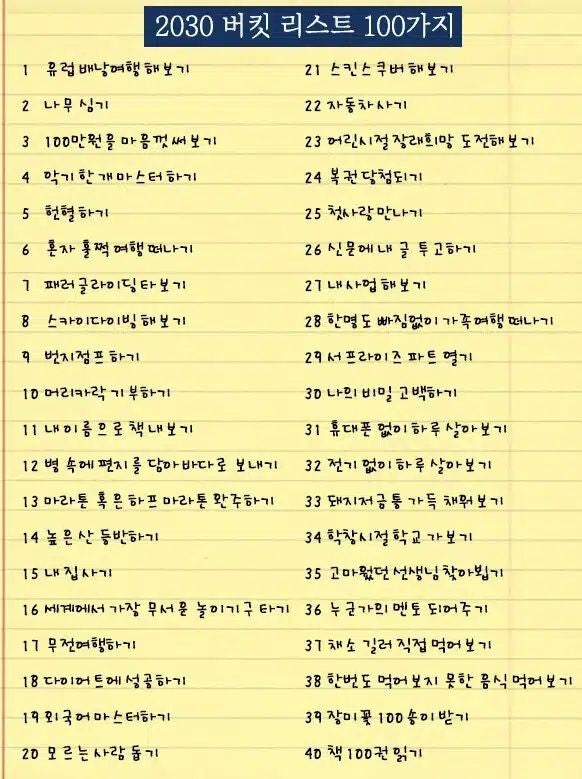 2030 버킷 리스트 100가지
1 유럽 배낭여행 해보기
2 나무 심기
3 100만원을 마음껏 써보기
4 악기 한 개 마스터하기
5 헌혈하기
6 혼자 훌쩍 여행 떠나기
7 패러글라이딩 타보기
8 스카이다이빙 해보기
9 번지점프 하기
10 머리카락 기부하기
11 내 이름으로 책 내보기
12 병 속에 편지를 담아 바다로 보내기
13 마라톤 혹은 하프 마라톤 완주하기
14 높은 산 등반하기
15 내 집 사기
16 세계에서 가장 무서운 놀이기구 타기
17 무전여행하기
18 다이어트에 성공하기
19 외국어 마스터하기
20 모르는 사람 돕기
21 스킨스쿠버 해보기
22 자동차 사기
23 어린시절 장래희망 도전해보기
24 복권 당첨되기
25 첫사랑 만나기
26 신문에 내 글 투고하기
27 내 사업 해보기
28 한명도 빠짐없이 가족여행 떠나기
29 서프라이즈 파트 열기
30 나의 비밀 고백하기
31 휴대폰 없이 하루 살아보기
32 전기 없이 하루 살아보기
33 돼지저금통 가득 채워보기
34 학창시절 학교 가보기
35 고마웠던 선생님 찾아뵙기
36 누군가의 멘토 되어주기
37 채소 길러 직접 먹어보기
38 한번도 먹어보지 못한 음식 먹어보기
39 장미꽃 100송이 받기
40 책 100권 읽기